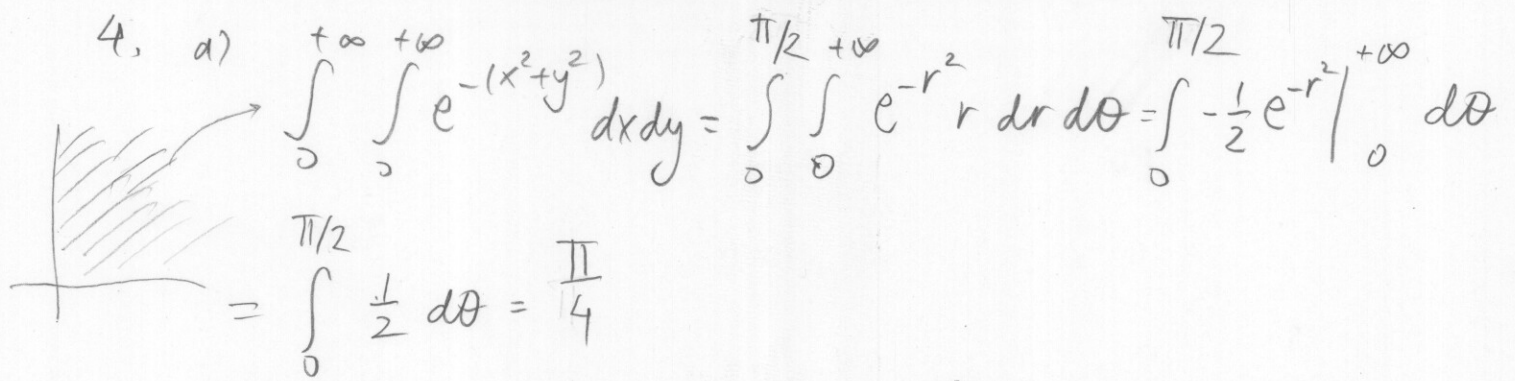 4. a) ∫₀^{+∞} ∫₀^{+∞} e^{-(x²+y²)} dxdy = ∫₀^{π/2} ∫₀^{+∞} e^{-r²} r dr dθ = ∫₀^{π/2} -½ e^{-r²} |₀^{+∞} dθ
= ∫₀^{π/2} ½ dθ = π/4